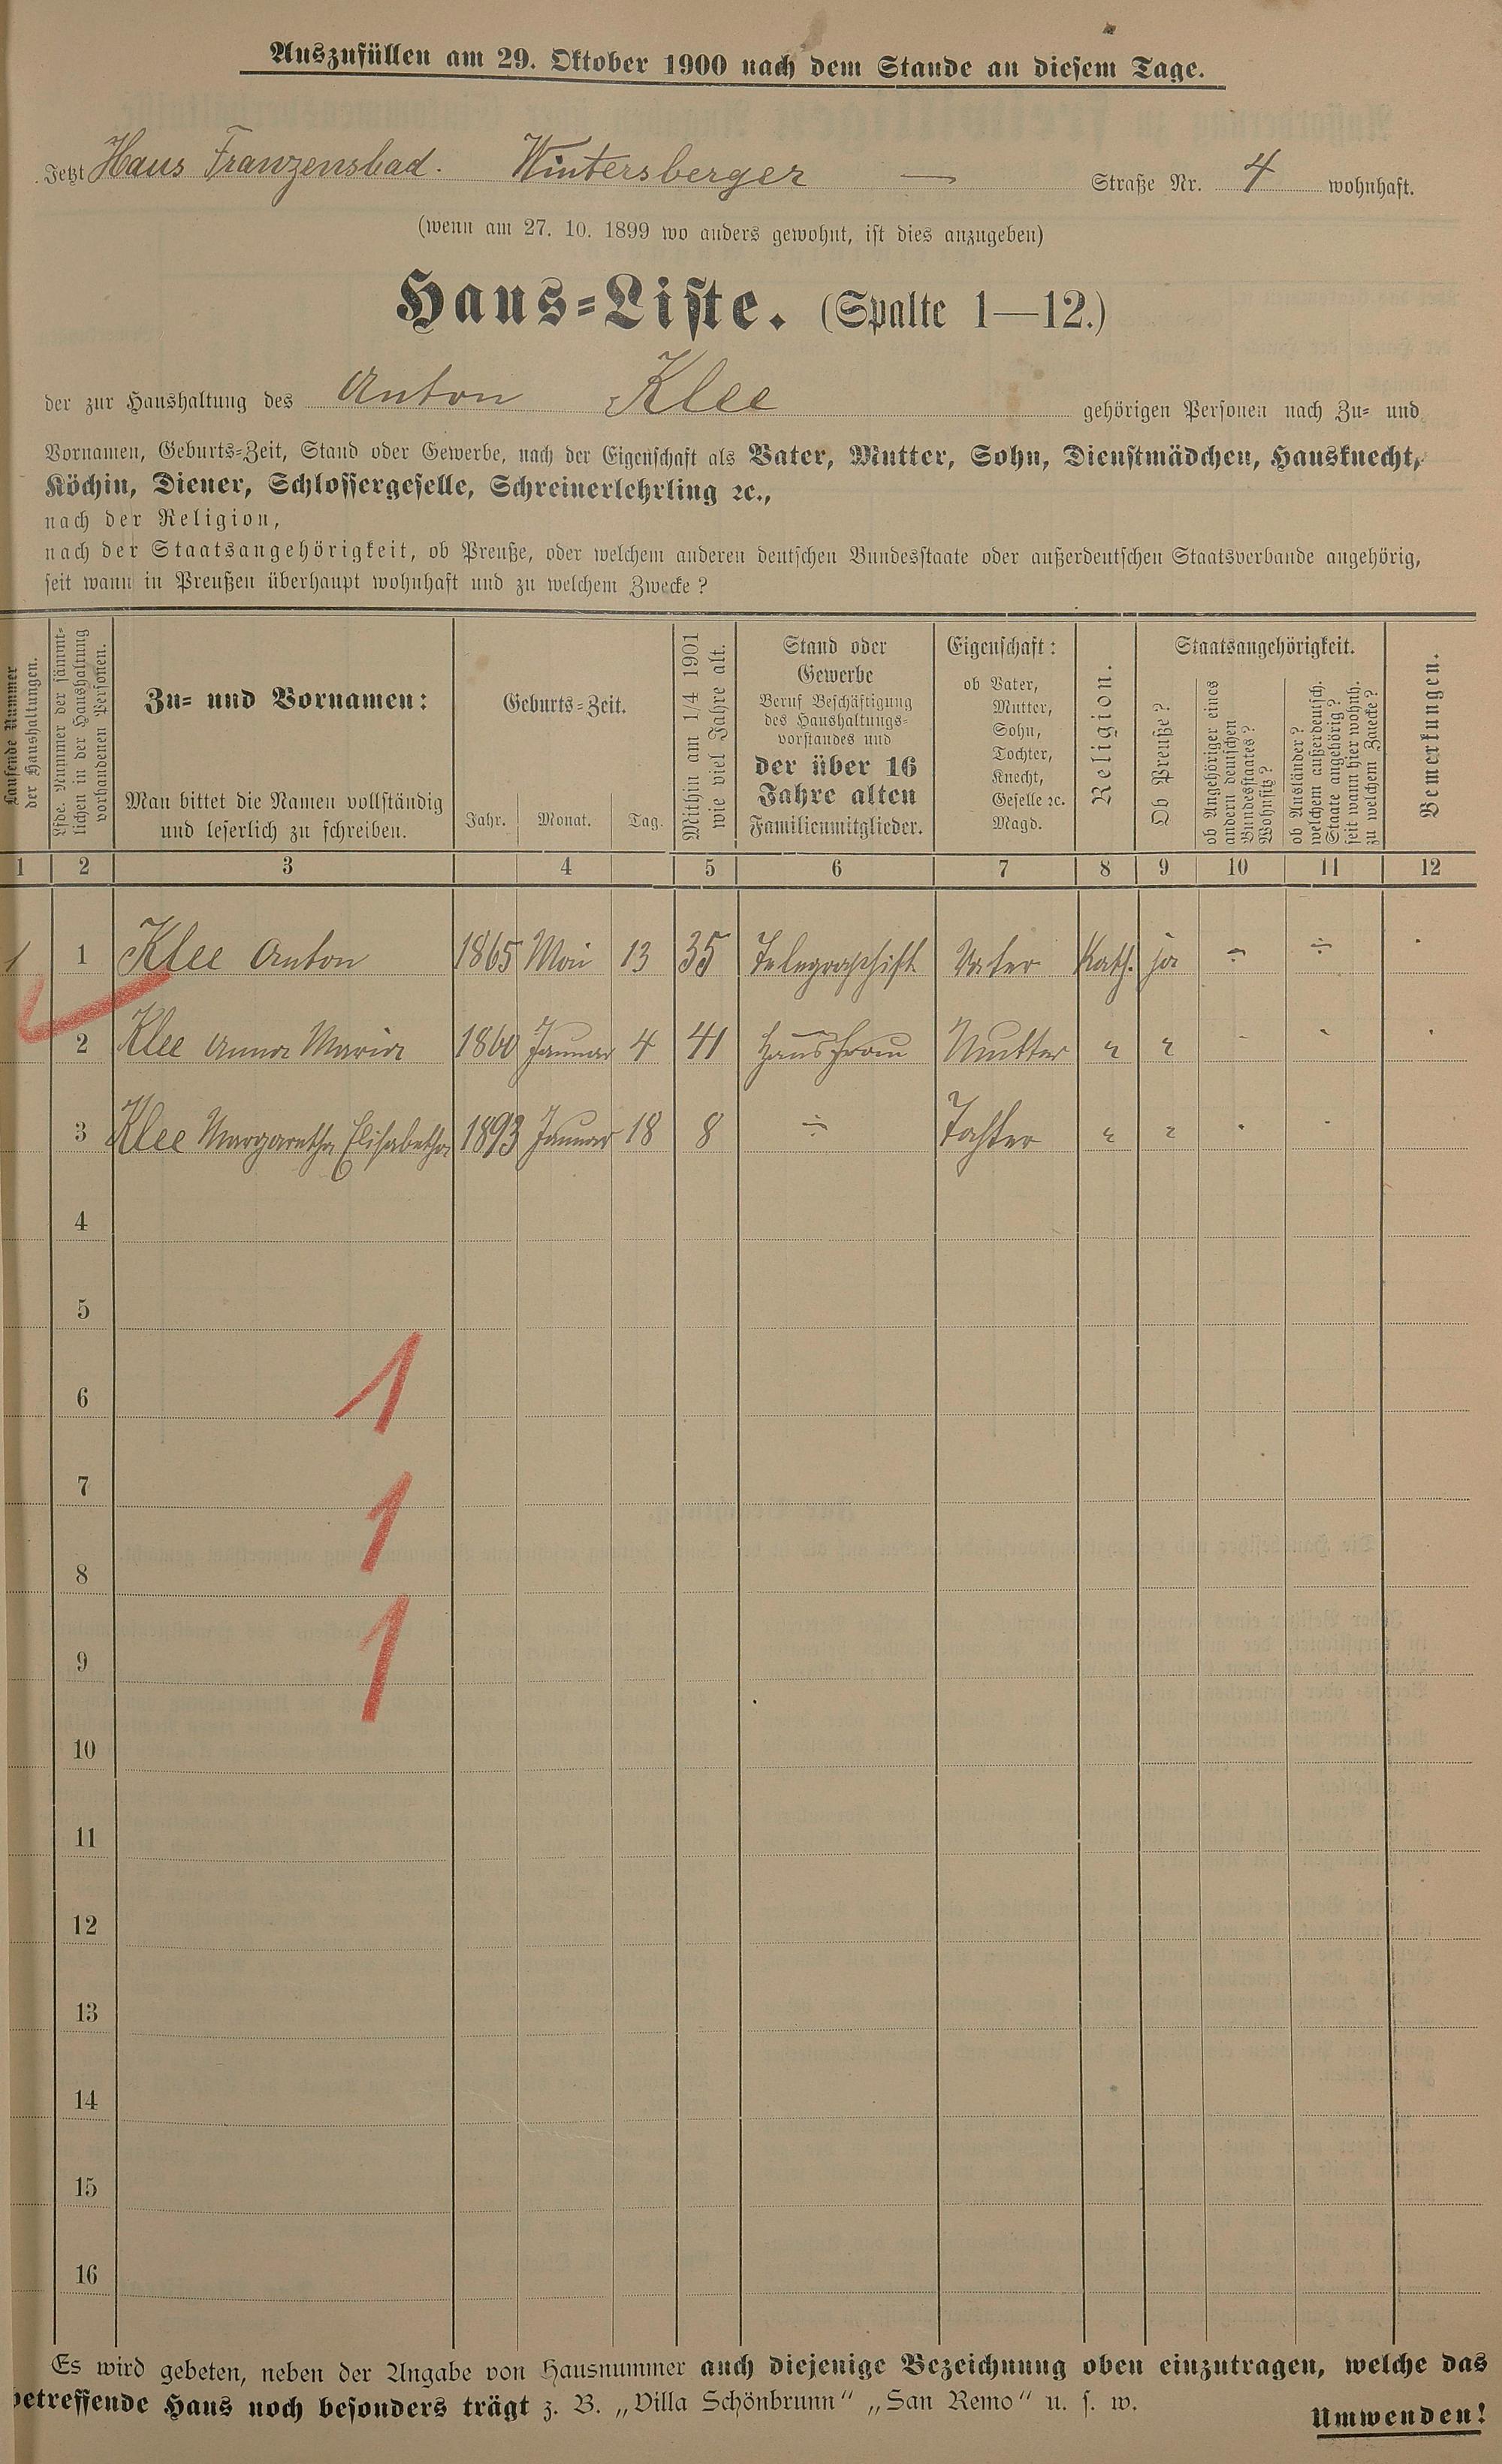 Auszufüllen am 29. Oktober 1900 nach dem Stande an diesem Tage.
Jetzt Haus Franzensbad. Wintersberger — Straße Nr. 4 wohnhaft.
(wenn am 27. 10. 1899 wo anders gewohnt, ist dies anzugeben)
Haus=Liste. (Spalte 1—12.)
der zur Haushaltung des Anton Klee gehörigen Personen nach Zu= und
Vornamen, Geburts=Zeit, Stand oder Gewerbe, nach der Eigenschaft als Vater, Mutter, Sohn, Dienstmädchen, Hausknecht,
Köchin, Diener, Schlossergeselle, Schreinerlehrling ꝛc.,
nach der Religion,
nach der Staatsangehörigkeit, ob Preuße, oder welchem anderen deutschen Bundesstaate oder außerdeutschen Staatsverbande angehörig,
seit wann in Preußen überhaupt wohnhaft und zu welchem Zwecke?
Laufende Nummer
der Haushaltungen.
Lfde. Nummer der sämmt=
lichen in der Haushaltung
vorhandenen Personen.
Zu= und Vornamen:
Man bittet die Namen vollständig
und leserlich zu schreiben.
Geburts=Zeit.
Jahr. Monat. Tag.
Mithin am 1/4 1901
wie viel Jahre alt.
Stand oder
Gewerbe
Beruf Beschäftigung
des Haushaltungs=
vorstandes und
der über 16
Jahre alten
Familienmitglieder.
Eigenschaft:
ob Vater,
Mutter,
Sohn,
Tochter,
Knecht,
Geselle ꝛc.
Magd.
Religion.
Staatsangehörigkeit.
Ob Preuße?
ob Angehöriger eines
andern deutschen
Bundesstaates?
Wohnsitz?
ob Ausländer?
welchem außerdeutsch.
Staate angehörig?
seit wann hier wohnh.
zu welchem Zwecke?
Bemerkungen.
1 2 3 4 5 6 7 8 9 10 11 12
1 1 Klee Anton 1865 Mai 13 35 Telegraphist Vater Kath. ja ÷ ÷ -
2 Klee Anna Maria 1860 Januar 4 41 Hausfrau Mutter " " - - -
3 Klee Margaretha Elisabetha 1893 Januar 18 8 ÷ Tochter " " - -
4
5
6
1
7
1
8
9
1
10
11
12
13
14
15
16
Es wird gebeten, neben der Angabe von Hausnummer auch diejenige Bezeichnung oben einzutragen, welche das
betreffende Haus noch besonders trägt z. B. „Villa Schönbrunn" „San Remo" u. s. w.
Umwenden!